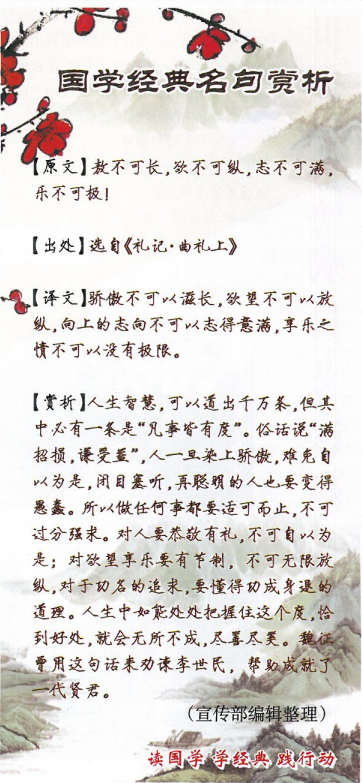 国学经典名句赏析
【原文】敖不可长,欲不可纵,志不可满,
乐不可极!
【出处】选自《礼记·曲礼上》
【译文】骄傲不可以滋长,欲望不可以放
纵,向上的志向不可以志得意满,享乐之
情不可以没有极限。
【赏析】人生智慧,可以道出千万条,但其
中必有一条是“凡事皆有度”。俗话说“满
招损,谦受益”,人一旦染上骄傲,难免自
以为是,闭目塞听,再聪明的人也要变得
愚蠢。所以做任何事都要适可而止,不可
过分强求。对人要恭敬有礼,不可自以为
是；对欲望享乐要有节制,不可无限放
纵,对于功名的追求,要懂得功成身退的
道理。人生中如能处处把握住这个度,恰
到好处,就会无所不成,尽善尽美。魏征
曾用这句话来劝谏李世民,帮助成就了
一代贤君。
（宣传部编辑整理）
读国学 学经典 践行动